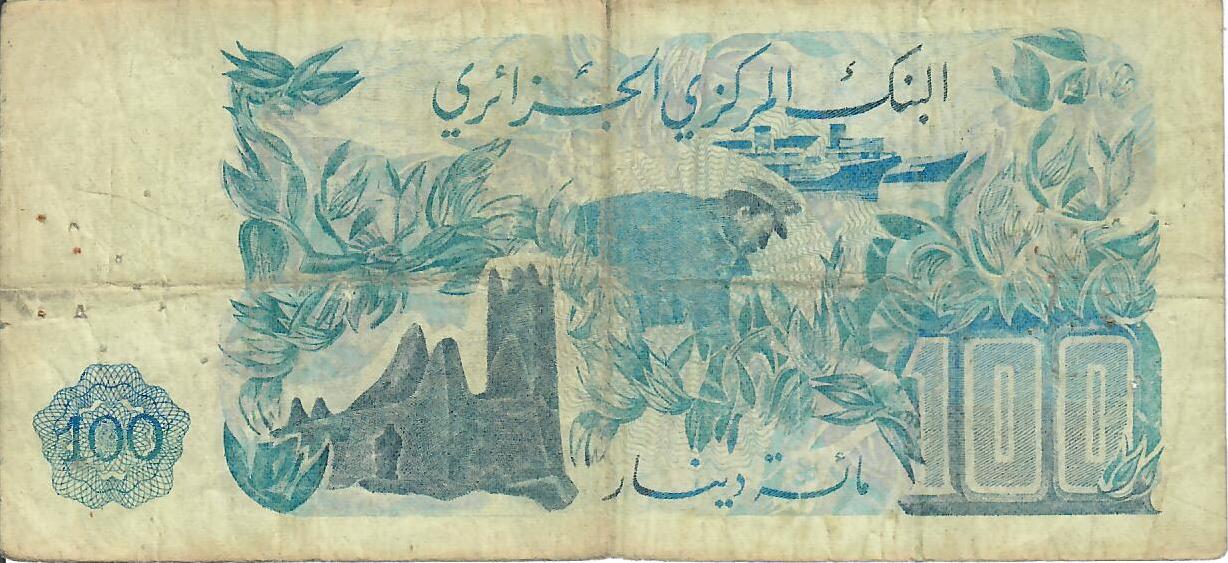 البنك المركزي الجزائري
مائة دينار
100
100